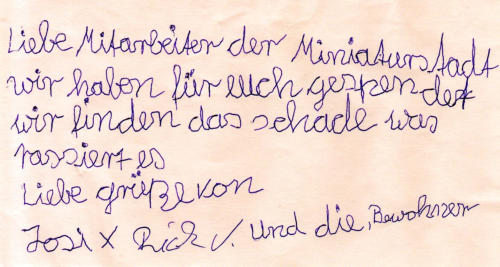 Liebe Mitarbeiter der Miniaturstadt
wir haben für euch gespendet
wir finden das schade was
passiert es
Liebe grüße von
Josi X Rick V. und die Bewohner